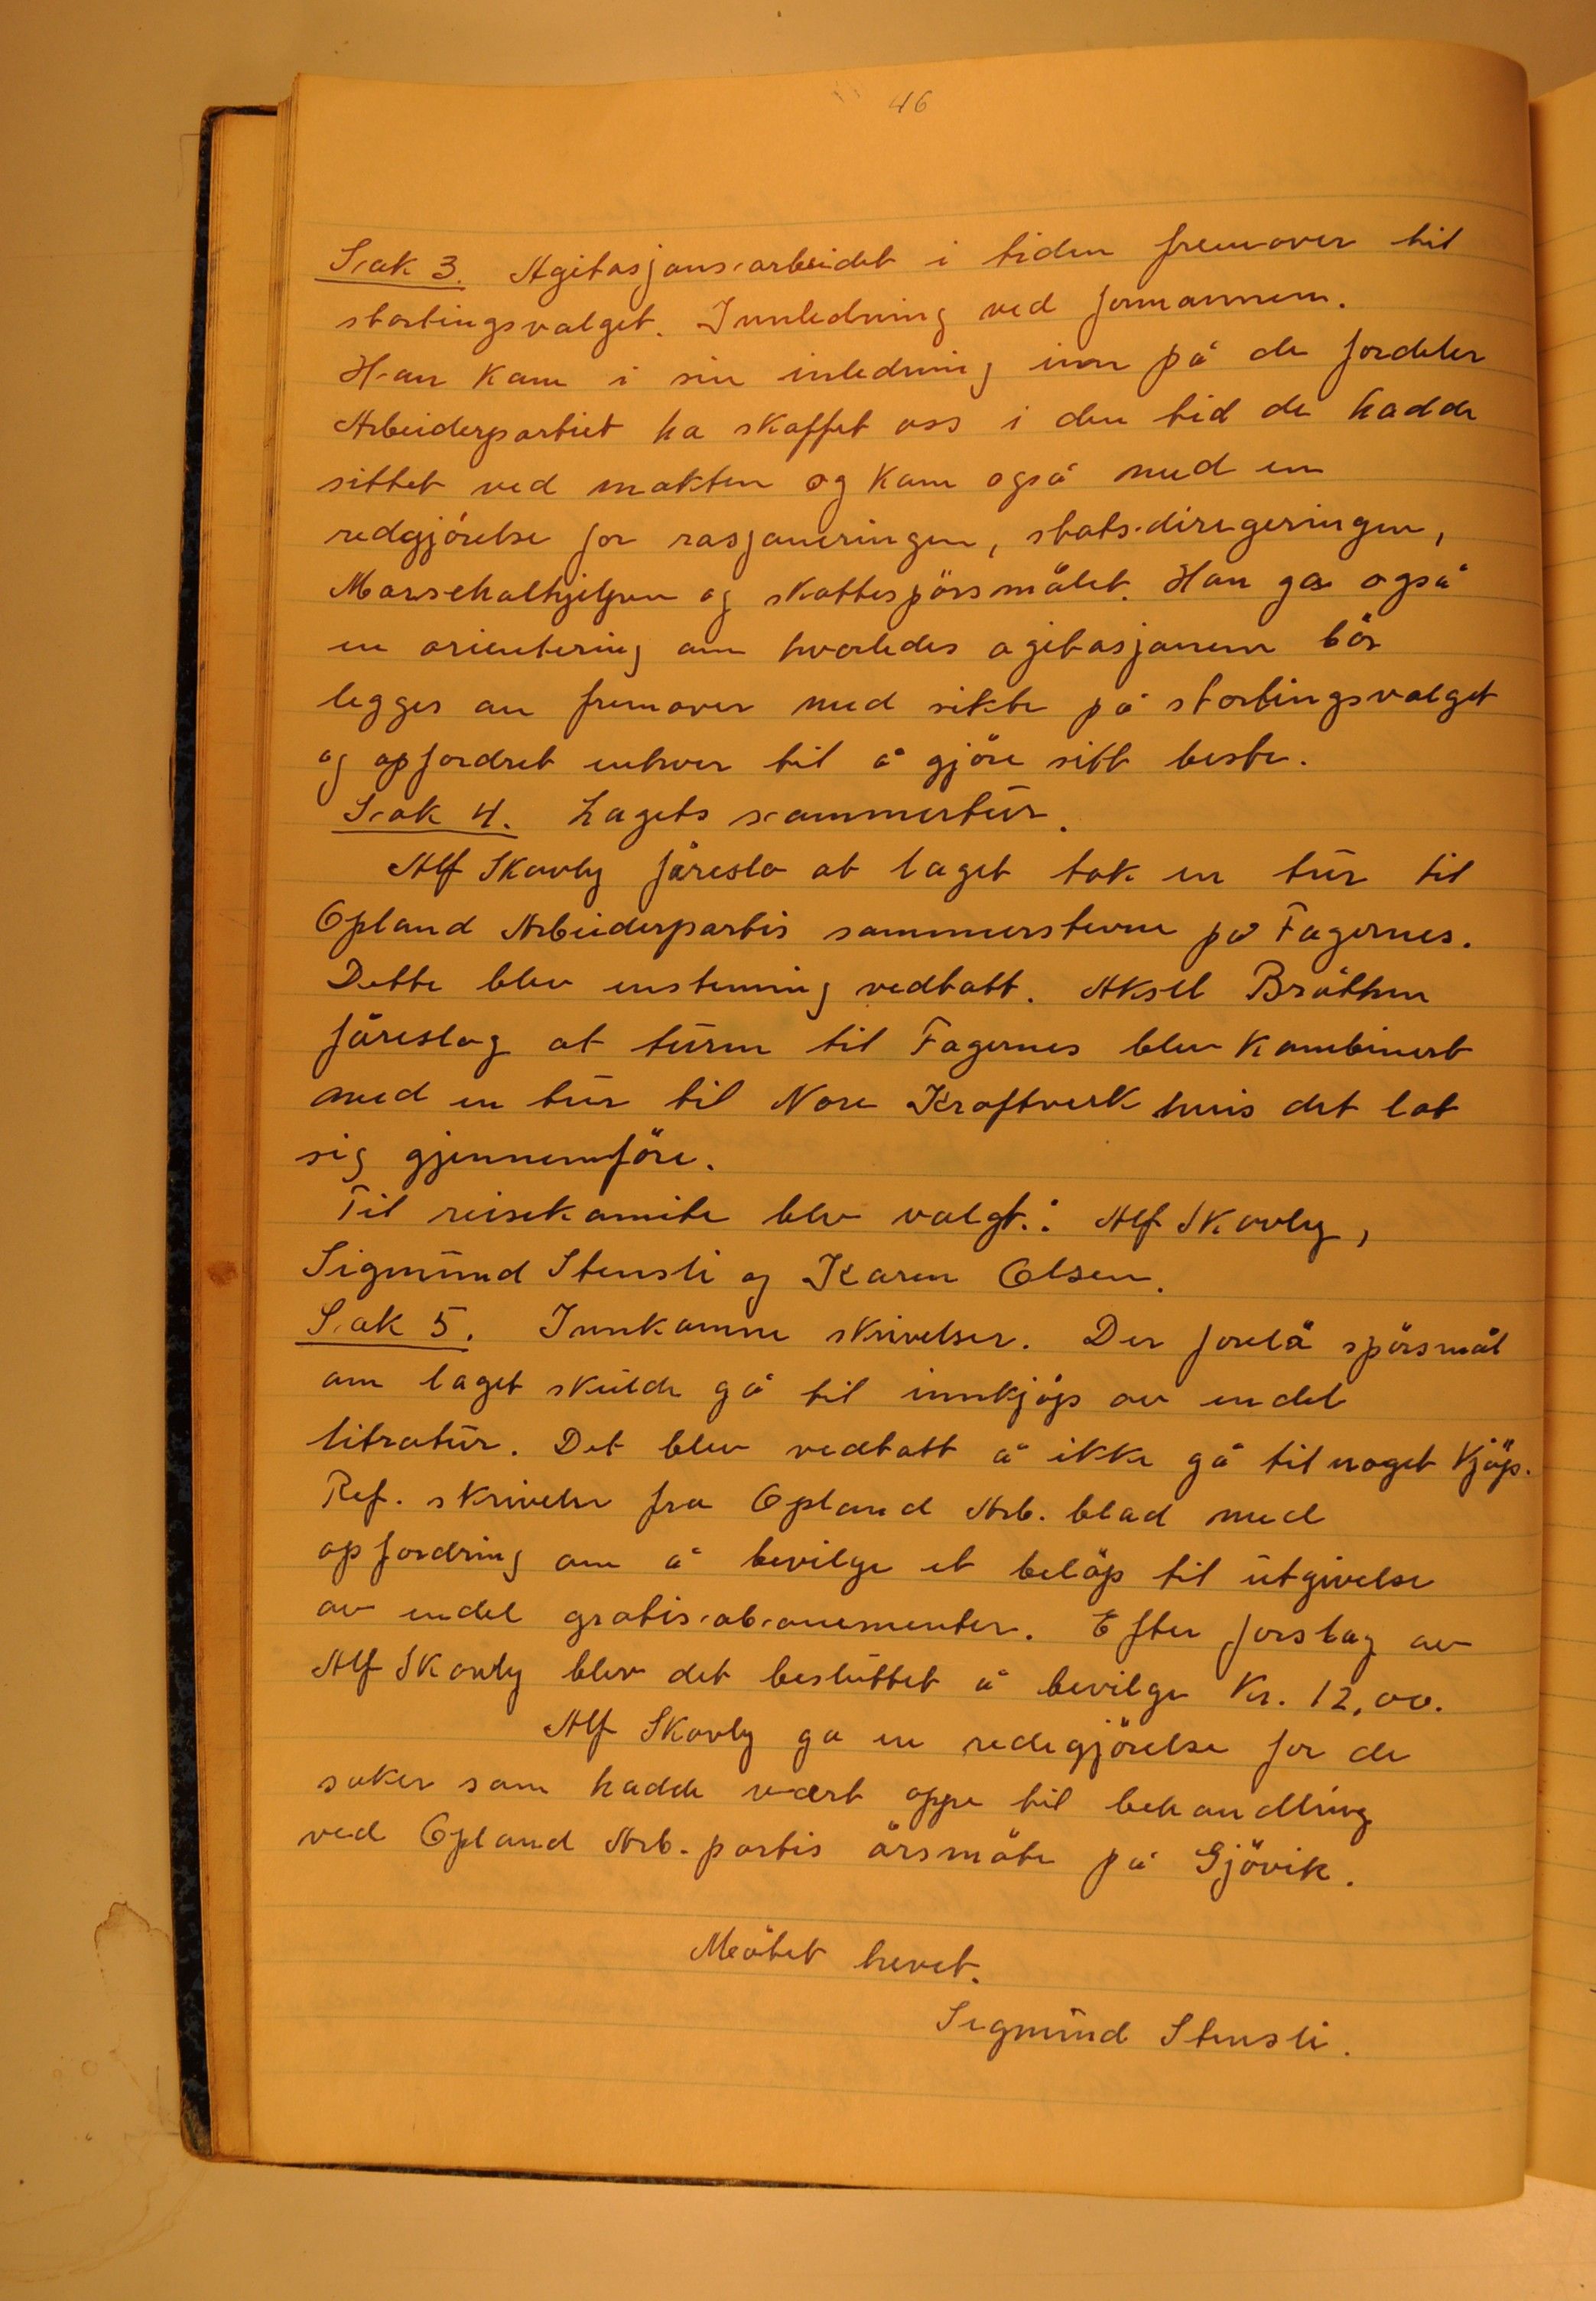 46
Sak 3. Agitasjonsarbeidet i tiden fremover til
stortingsvalget. Innledning ved formannen.
Han kom i sin inledning inn på de fordeler
Arbeiderpartiet ha skaffet oss i den tid de hadde
sittet ved makten og kom også med en
redgjörelse for rasjoneringen, statsdirigeringen,
Marschalhjelpen og skattespörsmålet. Han ga også
en orientering om hvorledes agitasjonen bör
legges an fremover med sikte på stortingsvalget
og opfordret enhver til å gjöre sitt beste.
Sak 4. Lagets sommertur.
Alf Skovly föreslo at laget tok en tur til
Opland Arbeiderpartis sommerstevne på Fagernes.
Dette blev enstemmig vedtatt. Aksel Bråthen
föreslog at turen til Fagernes blev kombinert
med en tur til Nore Kraftverk hvis det lot
sig gjennemföre.
Til reisekomite blev valgt: Alf Skovly,
Sigmund Stensli og Karen Olsen.
Sak 5. Innkomne skrivelser. Der forelå spörsmål
om laget skulde gå til innkjöp av endel
litratur. Det blev vedtatt å ikke gå til noget kjöp.
Ref. skrivelse fra Opland Arb. blad med
opfordring om å bevilge et belöp til utgivelse
av endel gratisabonementer. Efter forslag av
Alf Skovly blev det besluttet å bevilge Kr. 12,00.
Alf Skovly ga en redegjörelse for de
saker som hadde vært oppe til behandling
ved Opland Arb. partis årsmöte på Gjövik.
Mötet hevet.
Sigmund Stensli.